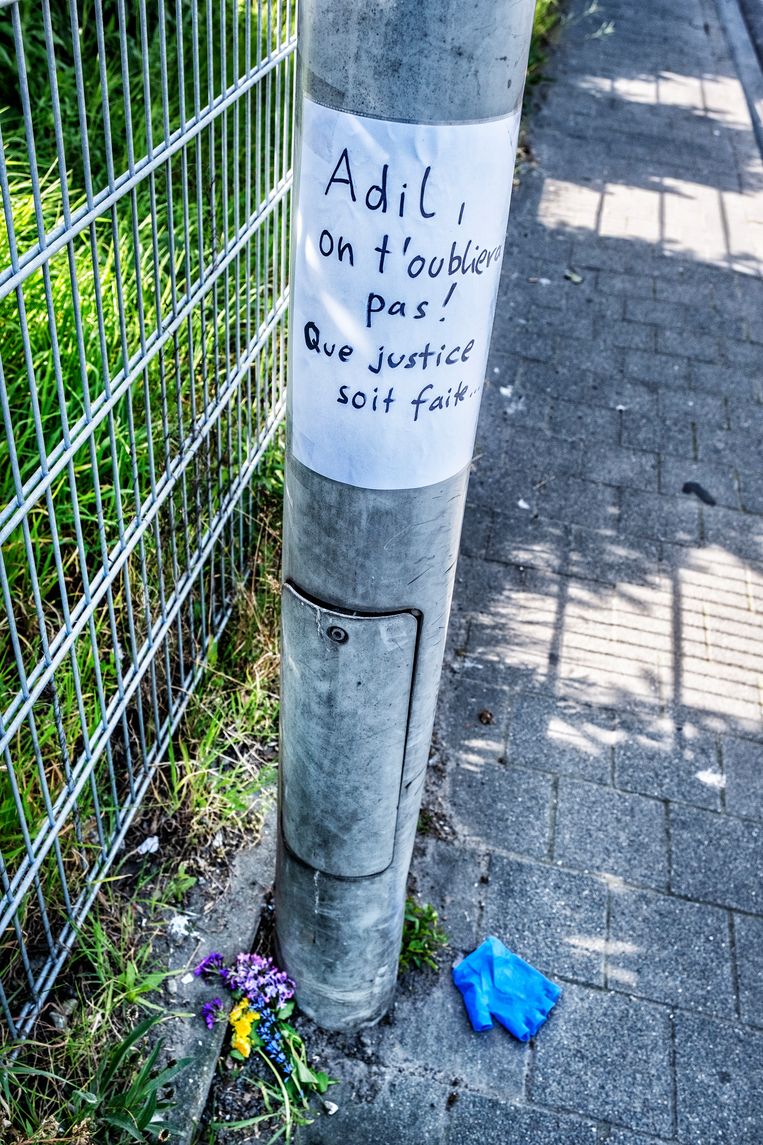 Adil,
on t'oubliera
pas!
Que justice
soit faite...